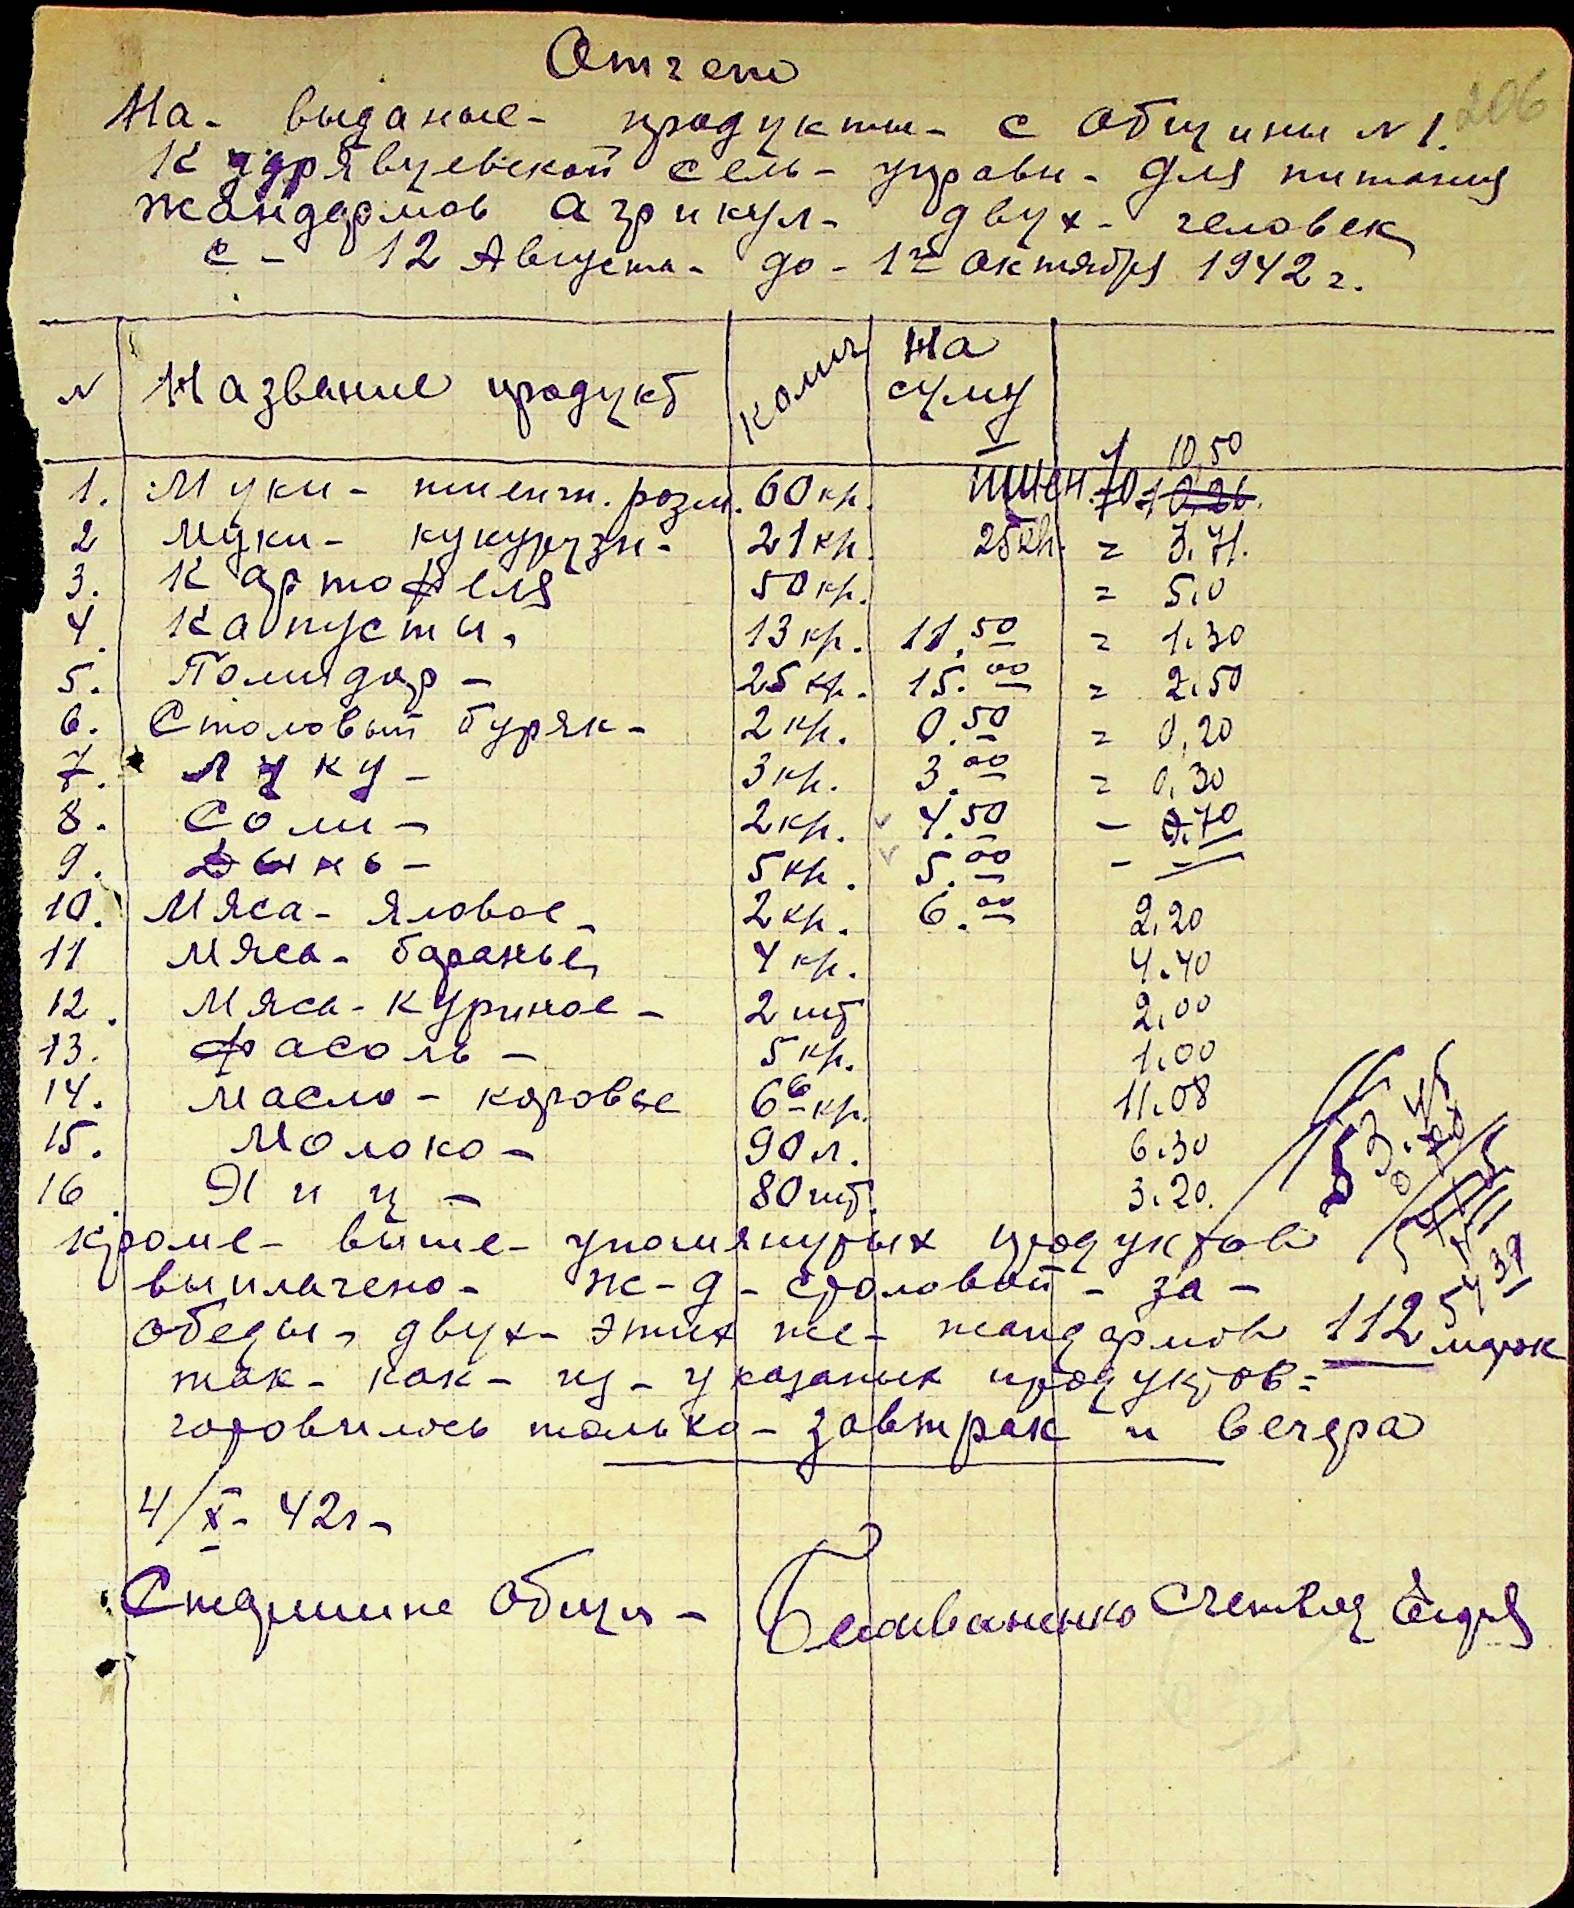 Отчет
206
На- выданые- продукты- с Общины N 1.
Кудрявцевской сель- управы- для питания
жандармов агрикул- двух- человек
с- 12 Августа- до- 1го октября 1942 г.
N Название продукт Колич На суму
10,50
1. Муки- пшенич. розм. 60 кг. пшен. 70 = 10,26.
2 Муки- кукурузн- 21 кг. 25 кг. = 3.71.
3. Картофеля 50 кг. = 5,0
4. Капусты, 13 кг. 11.50 = 1.30
5. Помидор- 25 кг. 15.00 = 2.50
6. Столовый буряк- 2 кг. 0.50 = 0,20
7. Луку- 3 кг. 3.00 = 0,30
8. Соли- 2 кг. 4.50 - 0.70
9. Дынь- 5 кг. 5.00 - -
10. Мяса- яловое- 2 кг. 6.00 2.20
11 Мяса- баранье, 4 кг. 4.40
12. Мяса- Куриное- 2 шт 2.00
13. Фасоль- 5 кг. 1.00
14. Масло- коровье 6 6 кг. 11.08
15. Молоко- 90 л. 6.30
16. Яиц- 80 шт. 3.20.
53.45
кроме- выше- упомянутых продуктов
выплачено- ж-д- столовой- за-
54 39
обеды- двух- этих же- жандармов 112 марок
так- как- из- указаных продуктов=
готовилось только- завтрак и вечеря
4/X- 42г-
Старшина Общи- Белываненко Счетовод